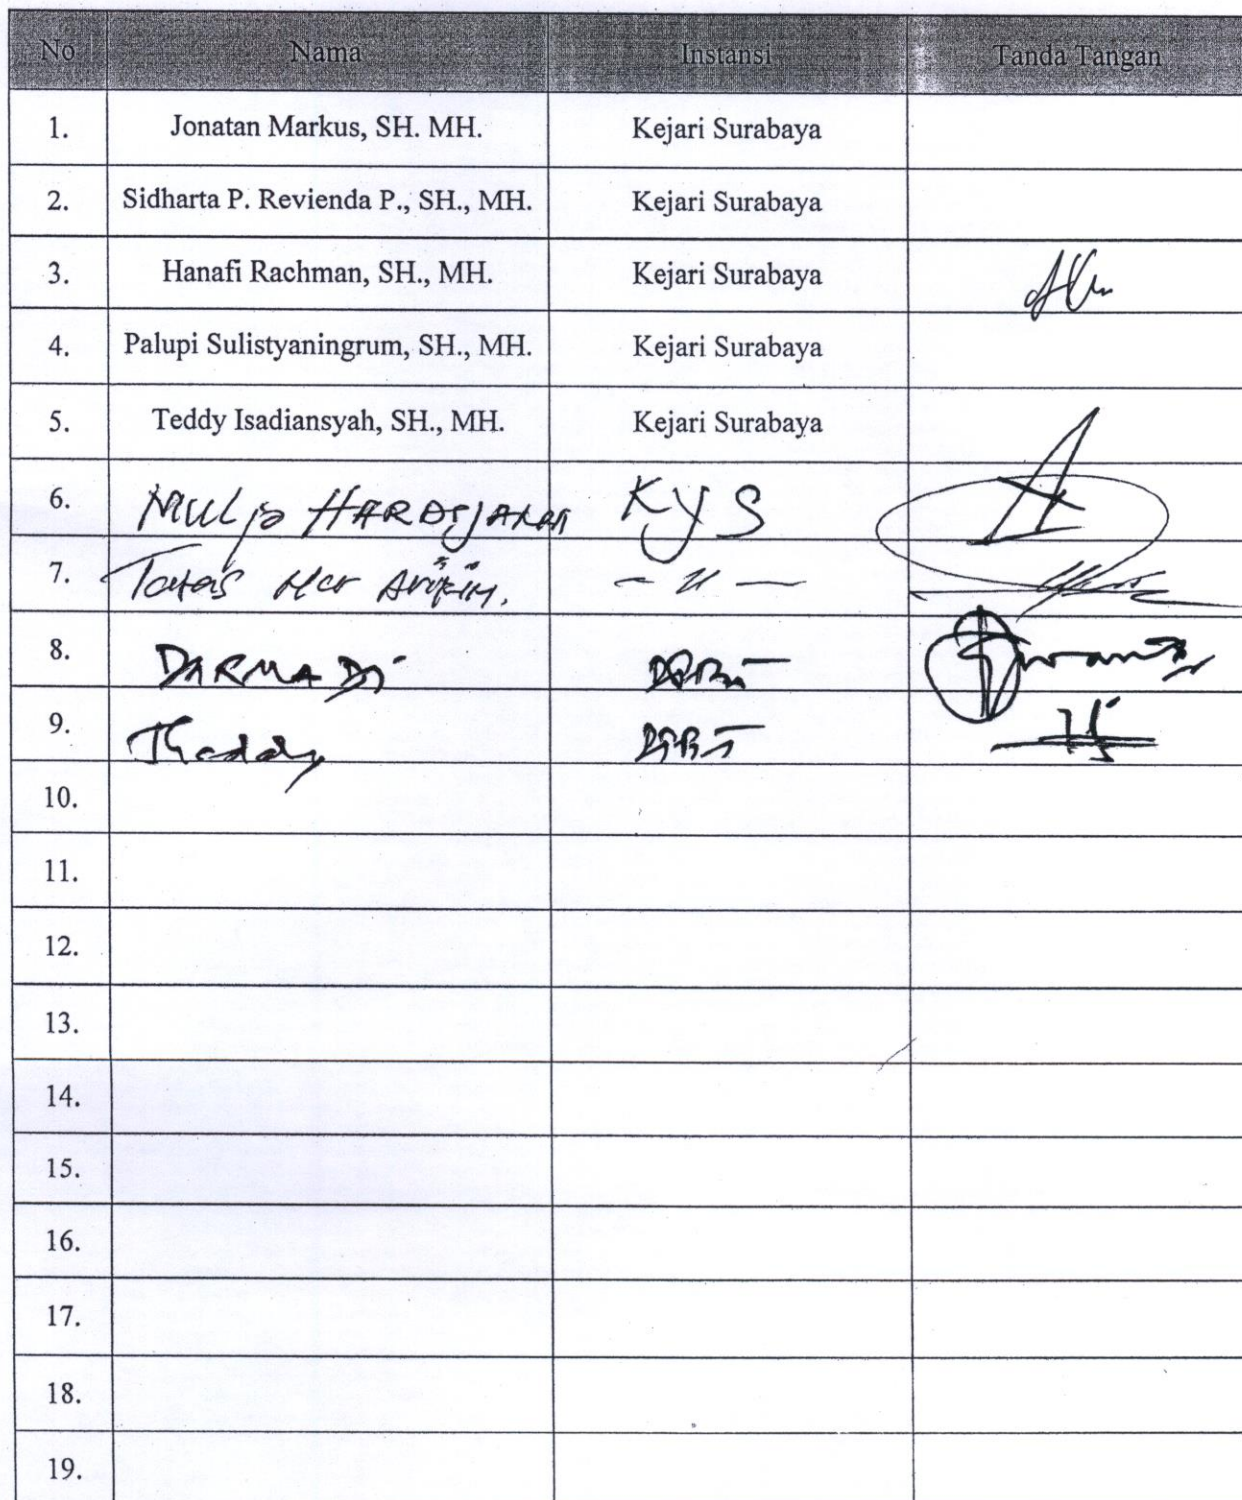 No Nama Instansi Tanda Tangan
1. Jonatan Markus, SH. MH. Kejari Surabaya
2. Sidharta P. Revienda P., SH., MH. Kejari Surabaya
3. Hanafi Rachman, SH., MH. Kejari Surabaya
4. Palupi Sulistyaningrum, SH., MH. Kejari Surabaya
5. Teddy Isadiansyah, SH., MH. Kejari Surabaya
6. KYS
7.
8. DARMADI
9. Theddy
10.
11.
12.
13.
14.
15.
16.
17.
18.
19.